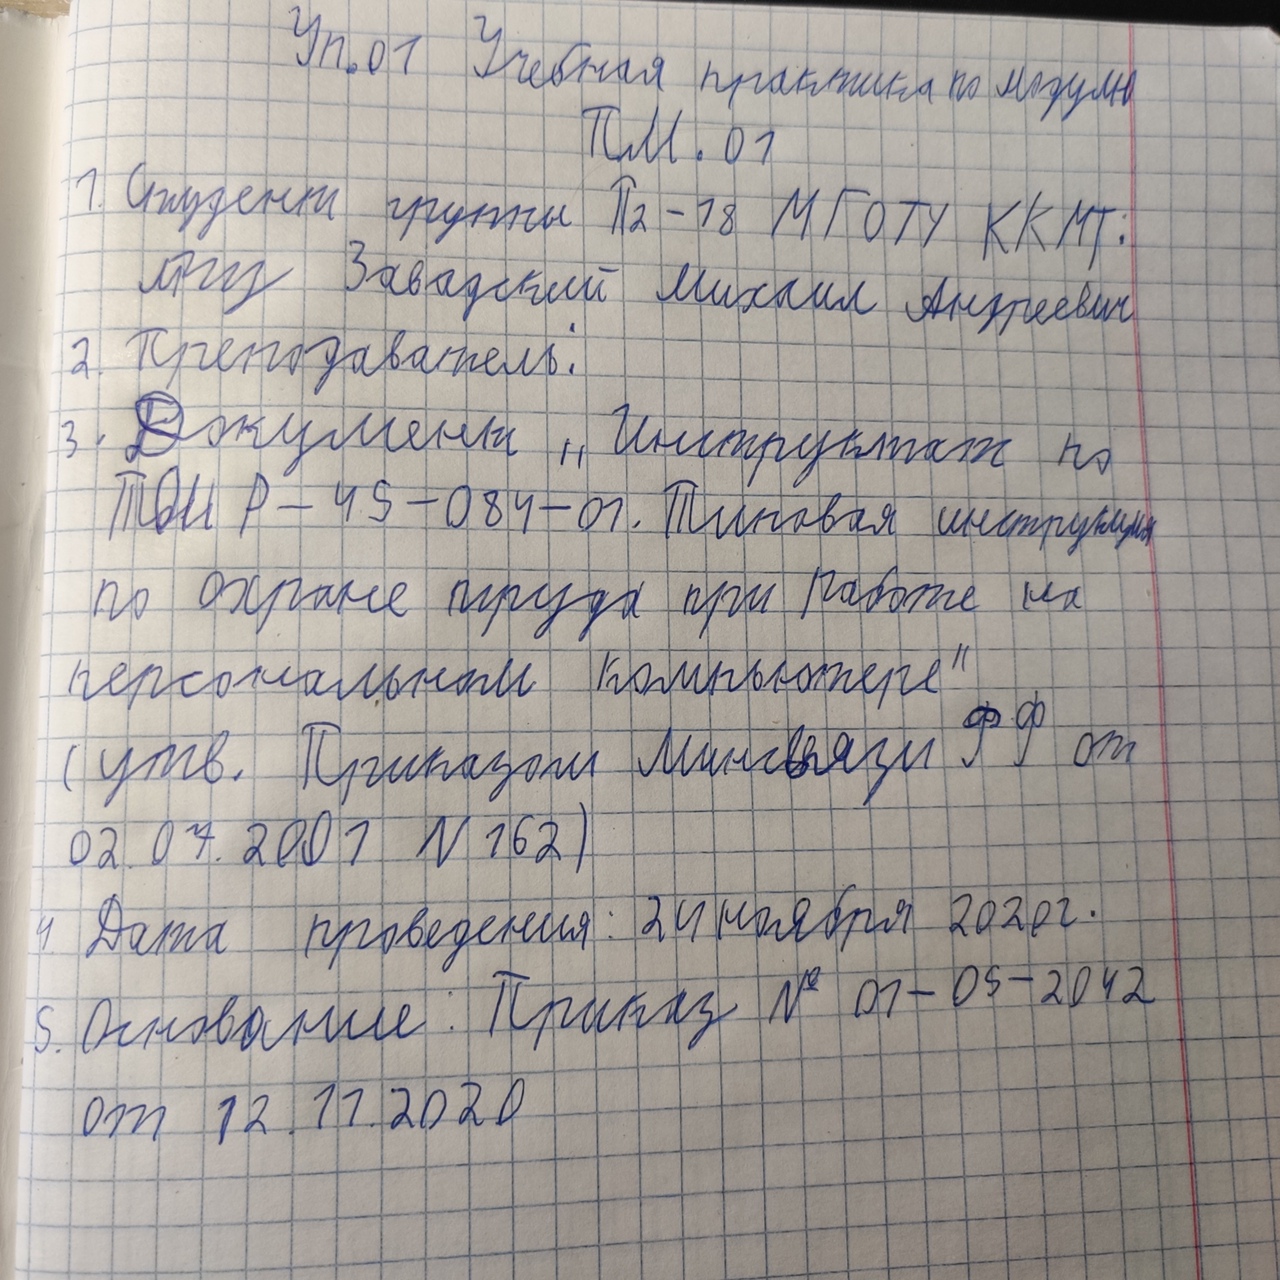 Уп.01 Учебная практика по модулю
ПМ.01
1. Студент группы П2-18 МГОТУ ККМТ:
Завадский Михаил Андреевич
2. Преподаватель:
3. Документ „Инструктаж по
ТОИ Р-45-084-01. Типовая инструкция
по охране труда при работе на
персональном компьютере"
(утв. Приказом Минсвязи РФ от
02.07.2001 N 162)
4. Дата проведения: 24 ноября 2020г.
5. Основание: Приказ № 01-05-2042
от 12.11.2020